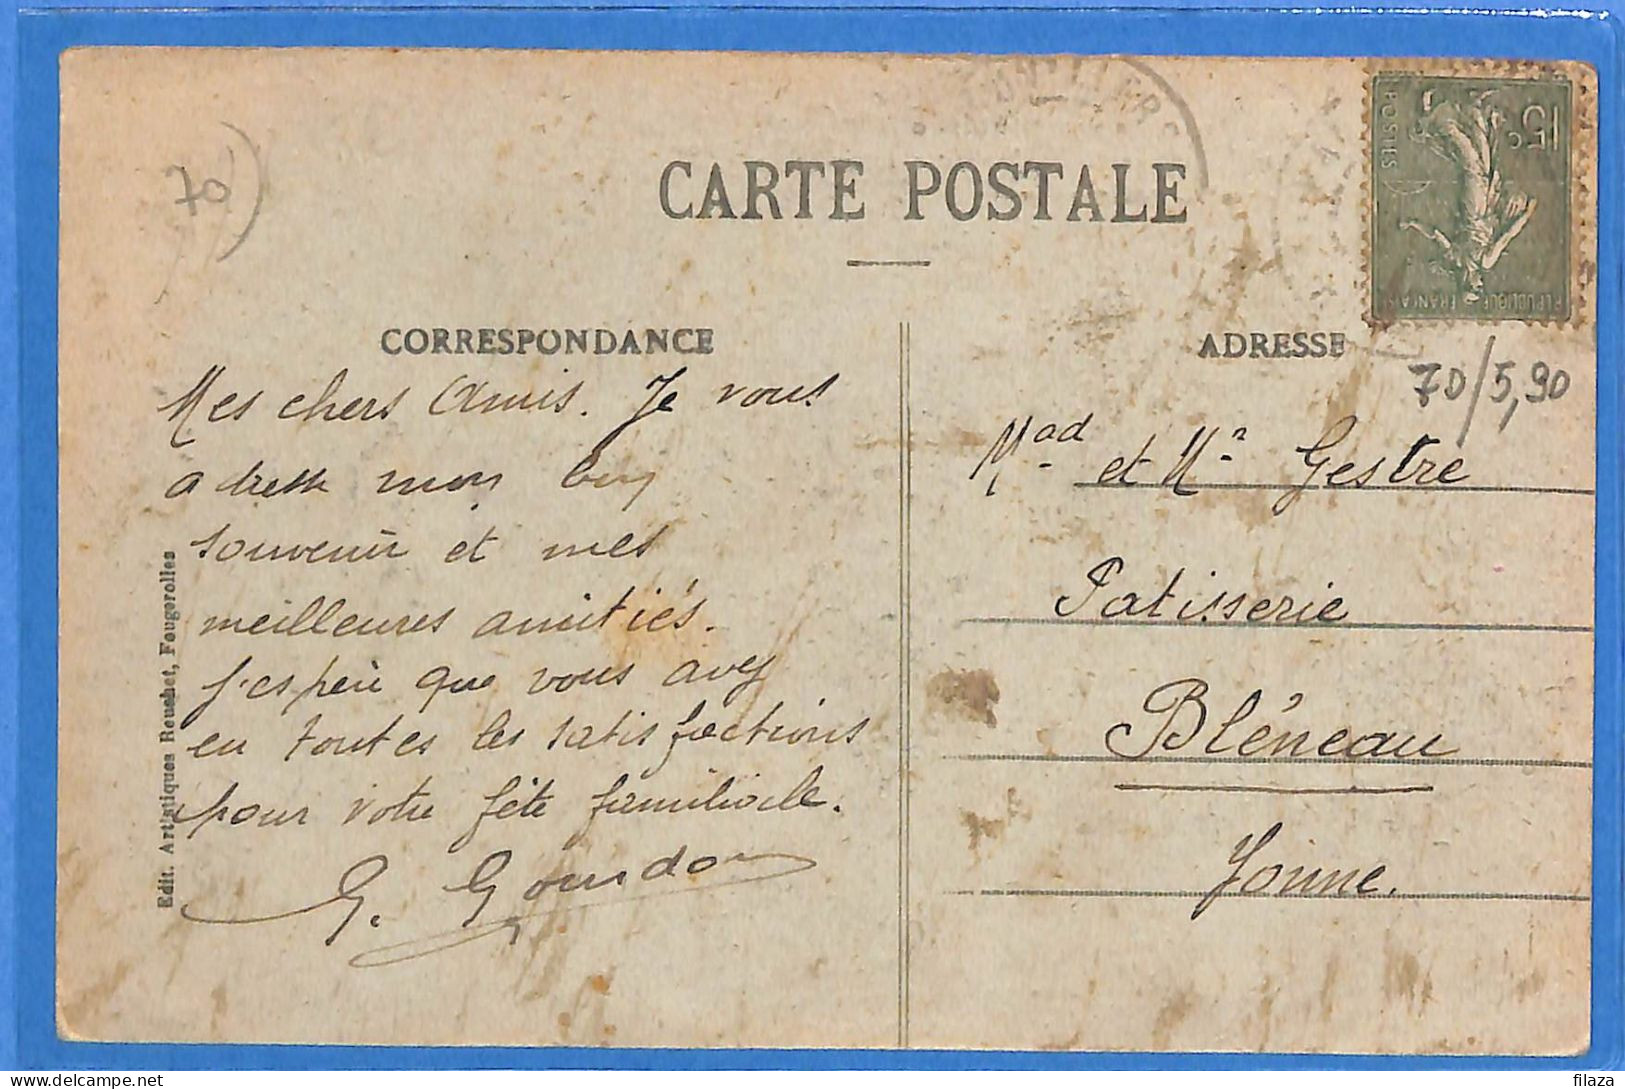 70
CARTE POSTALE
15c
POSTES
REPUBLIQUE FRANCAISE
CORRESPONDANCE
ADRESSE
70/5,90
Mes chers Amis. Je vous
adresse mon bon
souvenir et mes
meilleures amitiés.
J'espère que vous avez
eu toutes les satisfactions
pour votre fête familiale.
G. Gourdon
Mad et Mr Gestre
Patisserie
Bléneau
Yonne.
Edit. Artistiques Reuchet, Fougerolles
delcampe.net
filaza